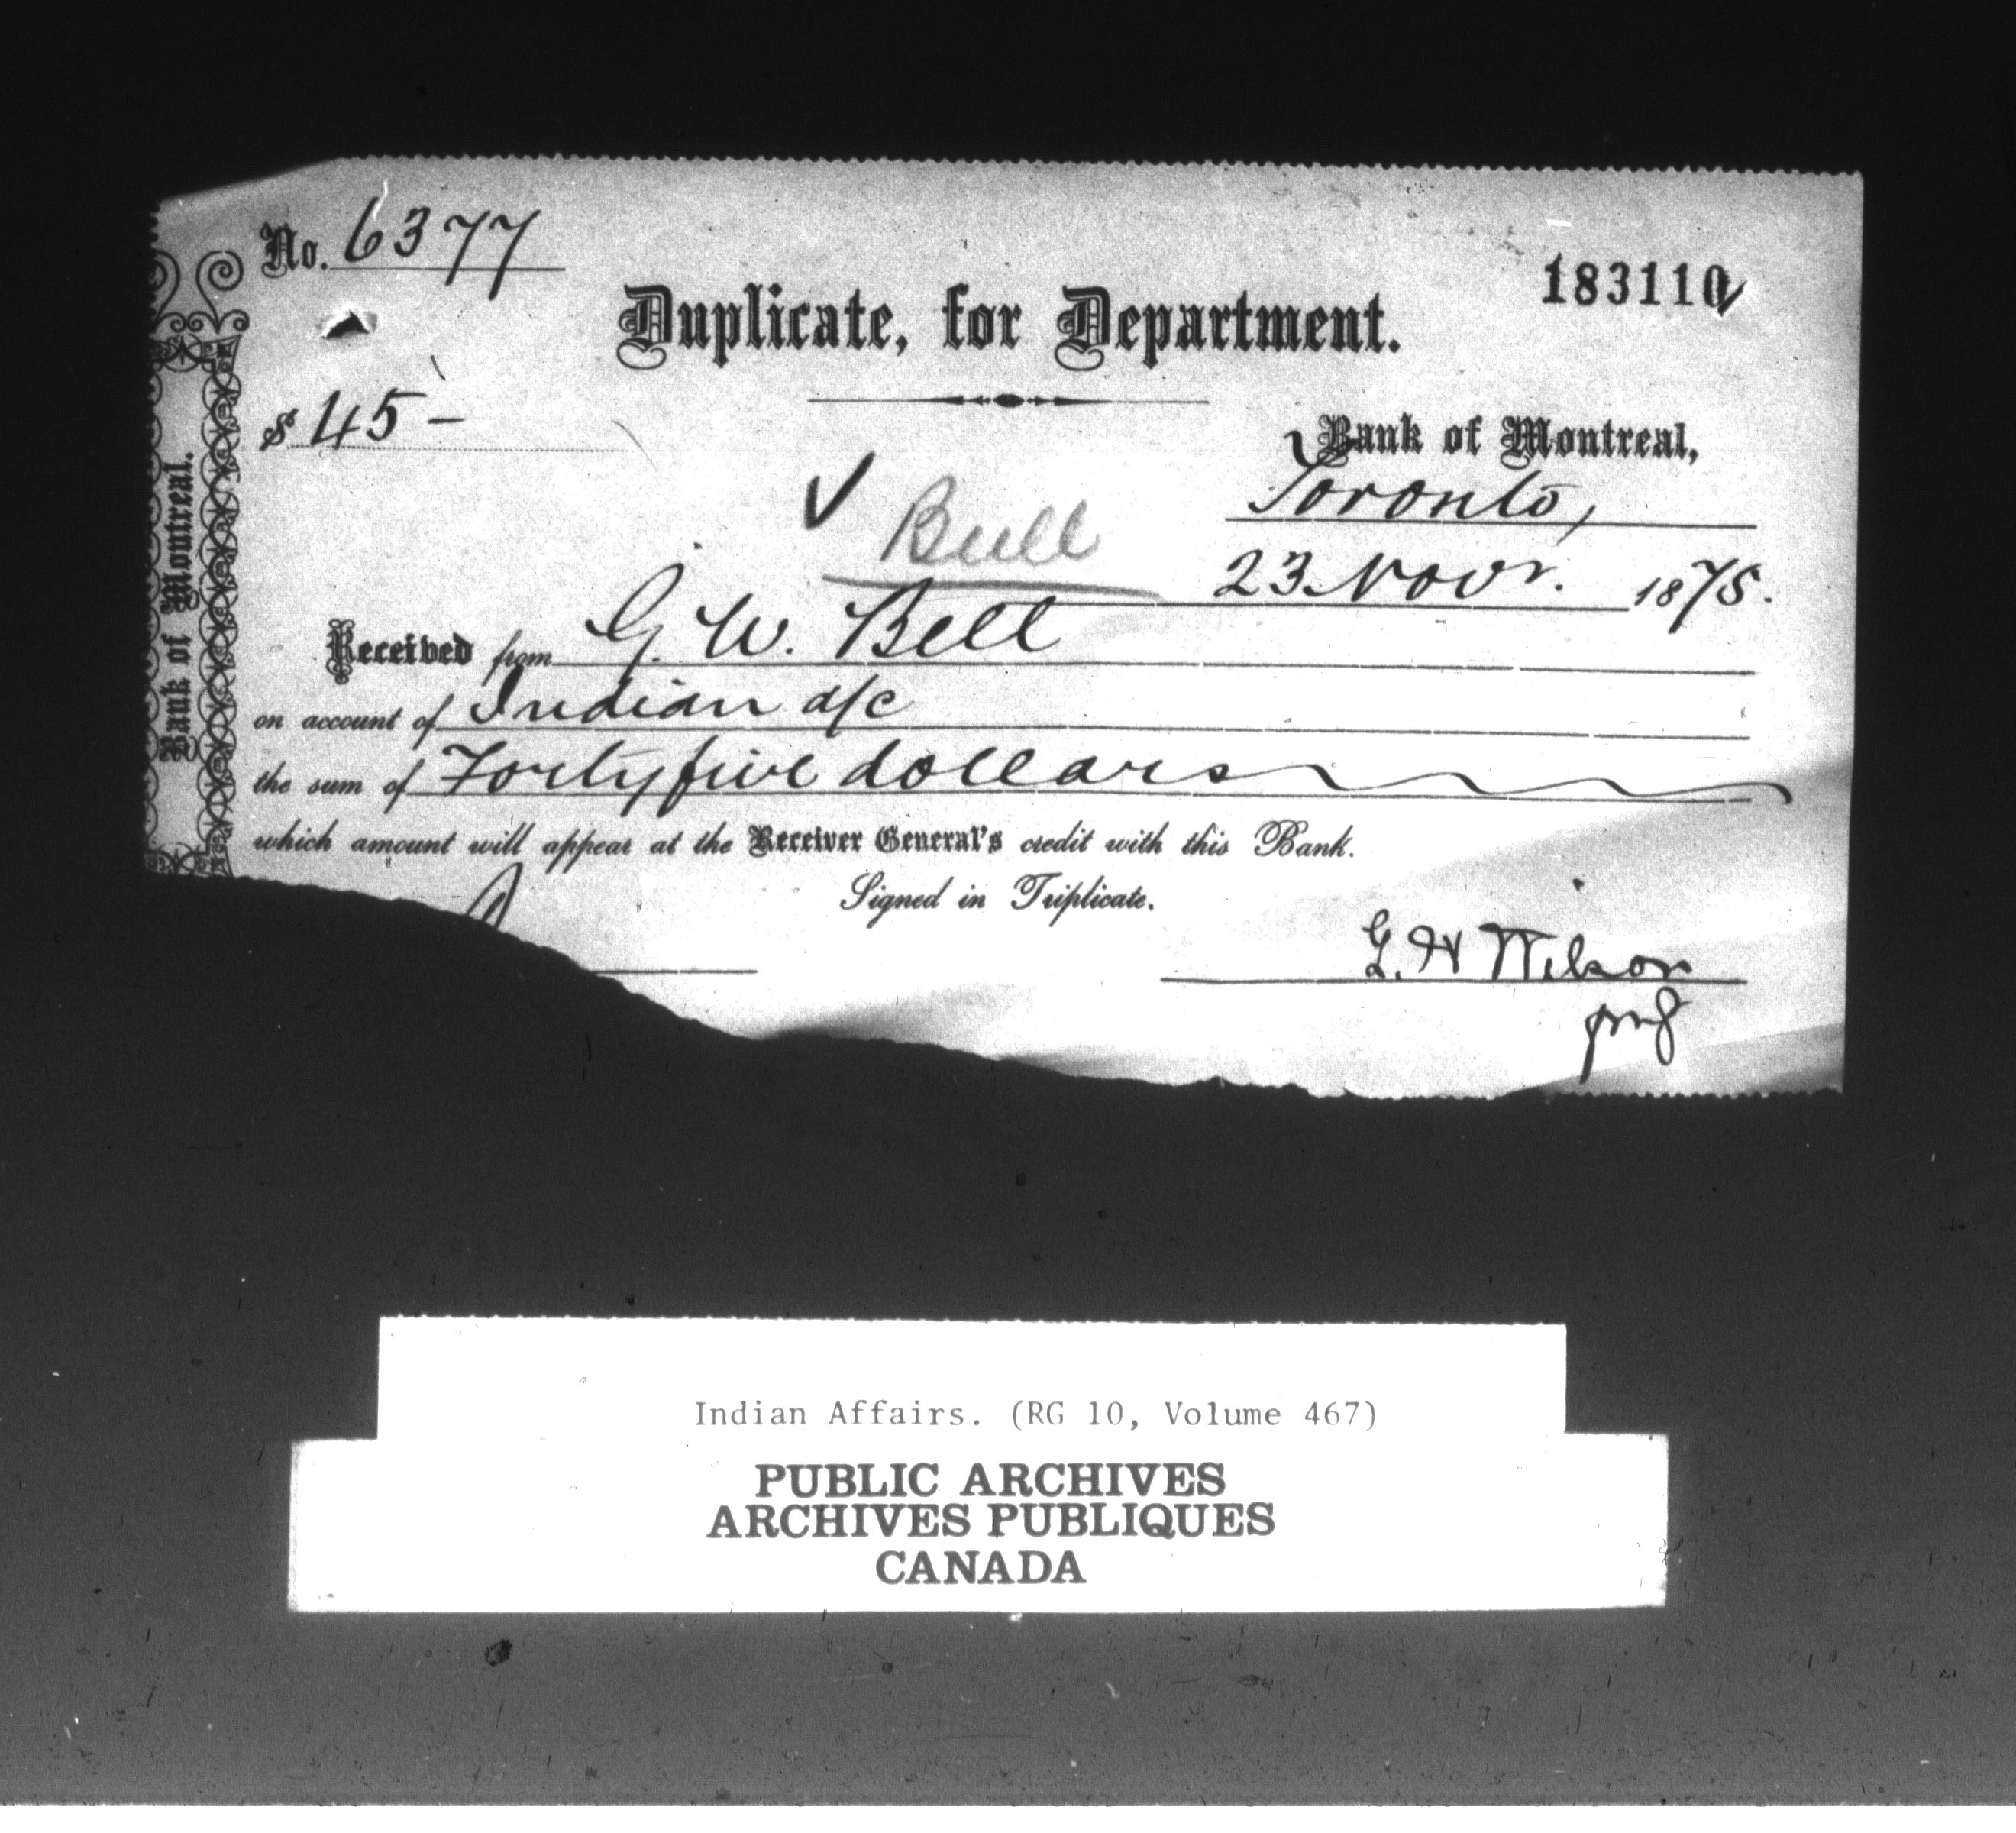 No. 6377
183110
Duplicate, for Department.
$ 45 –
Bank of Montreal,
Toronto,
Bull
23 Novr. 1875.
Received from G. W. Bell
on account of Indian a/c
the sum of Forty five dollars
which amount will appear at the Receiver General's credit with this Bank.
Signed in Triplicate.
G. H Wilson
Bank of Montreal.
Indian Affairs. (RG 10, Volume 467)
PUBLIC ARCHIVES
ARCHIVES PUBLIQUES
CANADA